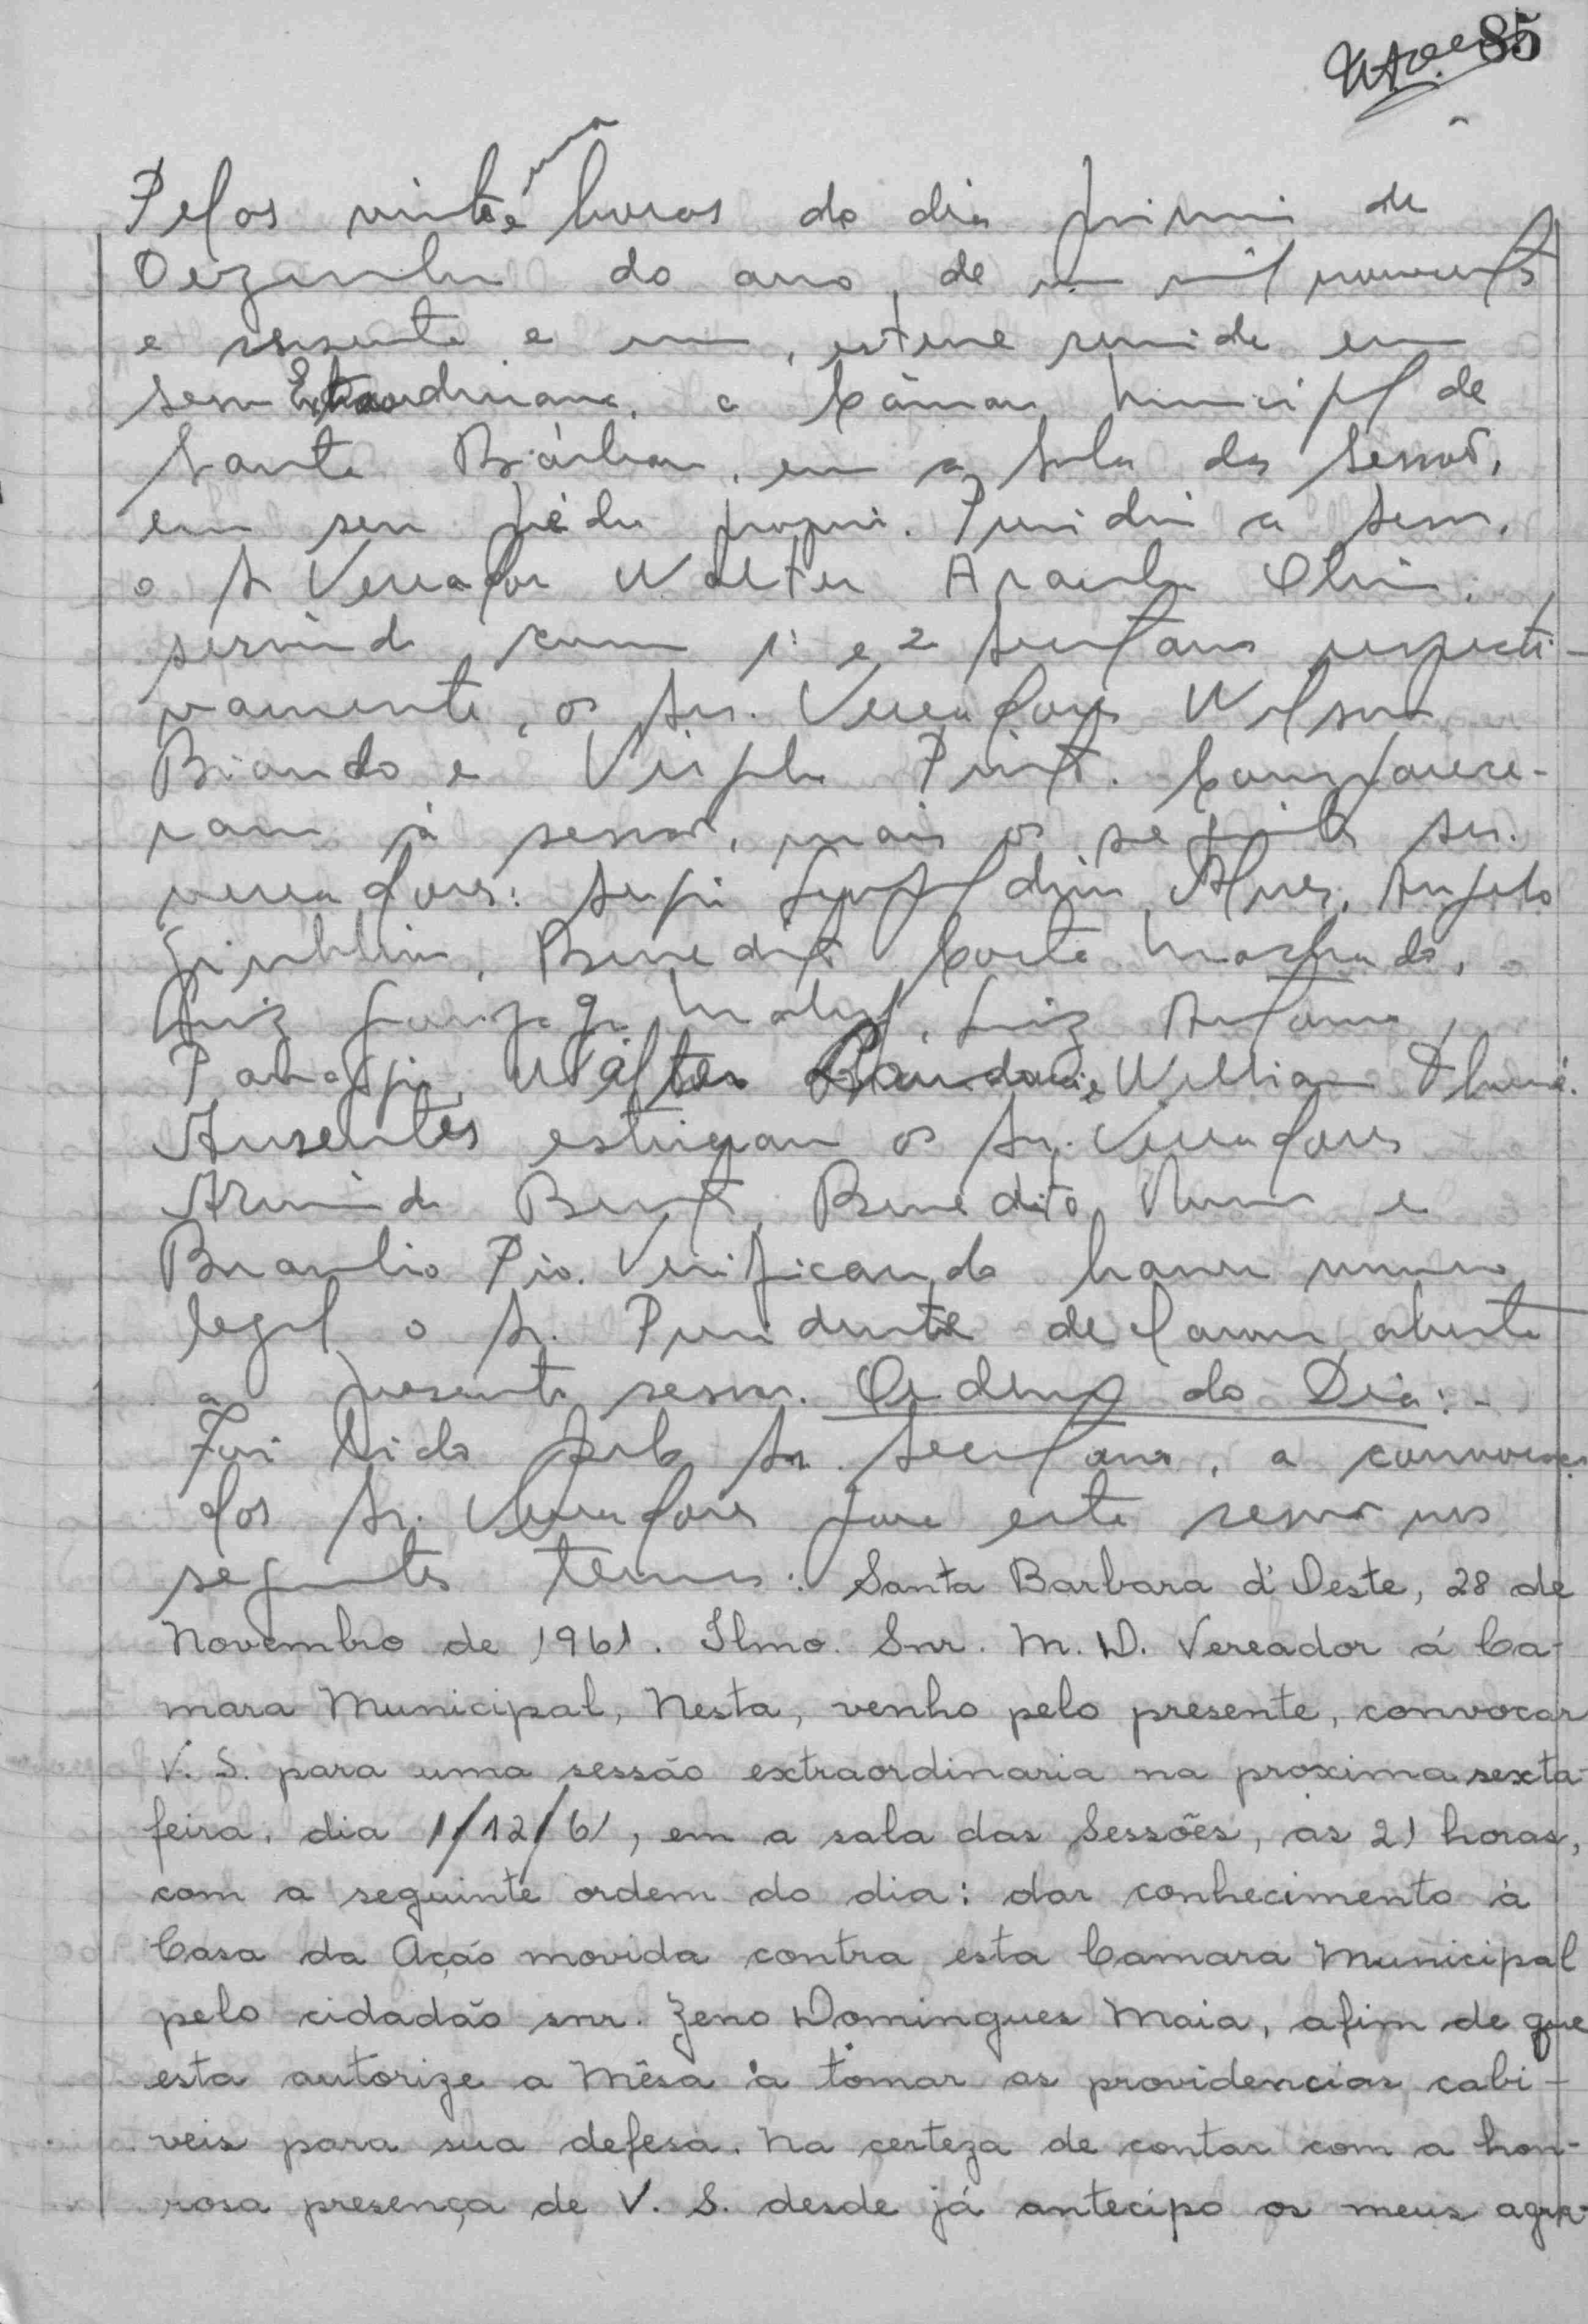 85
uma
Pelas vinte e horas do dia primeiro de
Dezembro do ano, de um mil novecentos
e sessenta e um, esteve reunida em
sessão Extraordinaria, a Câmara Municipal de
Santa Bárbara, em a sala das sessões,
em seu prédio proprio. Presidiu a sessão,
o Sr Vereador Walter Araceli
servindo como 1º e 2º secretarios respecti-
vamente, os Srs. Vereadores Wilson
e Virgilio Pinto. Comparece-
ram à sessão, mais os seguintes srs.
vereadores: Alves, Angelo
Benedito Costa Machado,
Luiz Gonzaga Luiz Antonio
Walter William
Ausentes estiveram os Srs. Vereadores
Armindo Benedito e
Braulio Pio. Verificando haver numero
legal o Sr. Presidente declarou aberta
a presente sessão. Ordem do Dia: -
Foi lido pelo Sr. Secretario, a convocação
dos Sr. Vereadores para esta sessão nos
seguintes termos: Santa Barbara d'Oeste, 28 de
Novembro de 1961. Ilmo. Snr. M. D. Vereador á Ca-
mara Municipal, Nesta, venho pelo presente, convocar
V. S. para uma sessão extraordinaria na proxima sexta-
feira, dia 1/12/61, em a sala das Sessões, as 21 horas,
com a seguinte ordem do dia: dar conhecimento à
Casa da Ação movida contra esta Camara Municipal
pelo cidadão snr. Zeno Domingues Maia, afim de que
esta autorize a Mêsa à tomar as providencias cabi-
veis para sua defesa. Na certeza de contar com a hon-
rosa presença de V. S. desde já antecipo os meus agra-